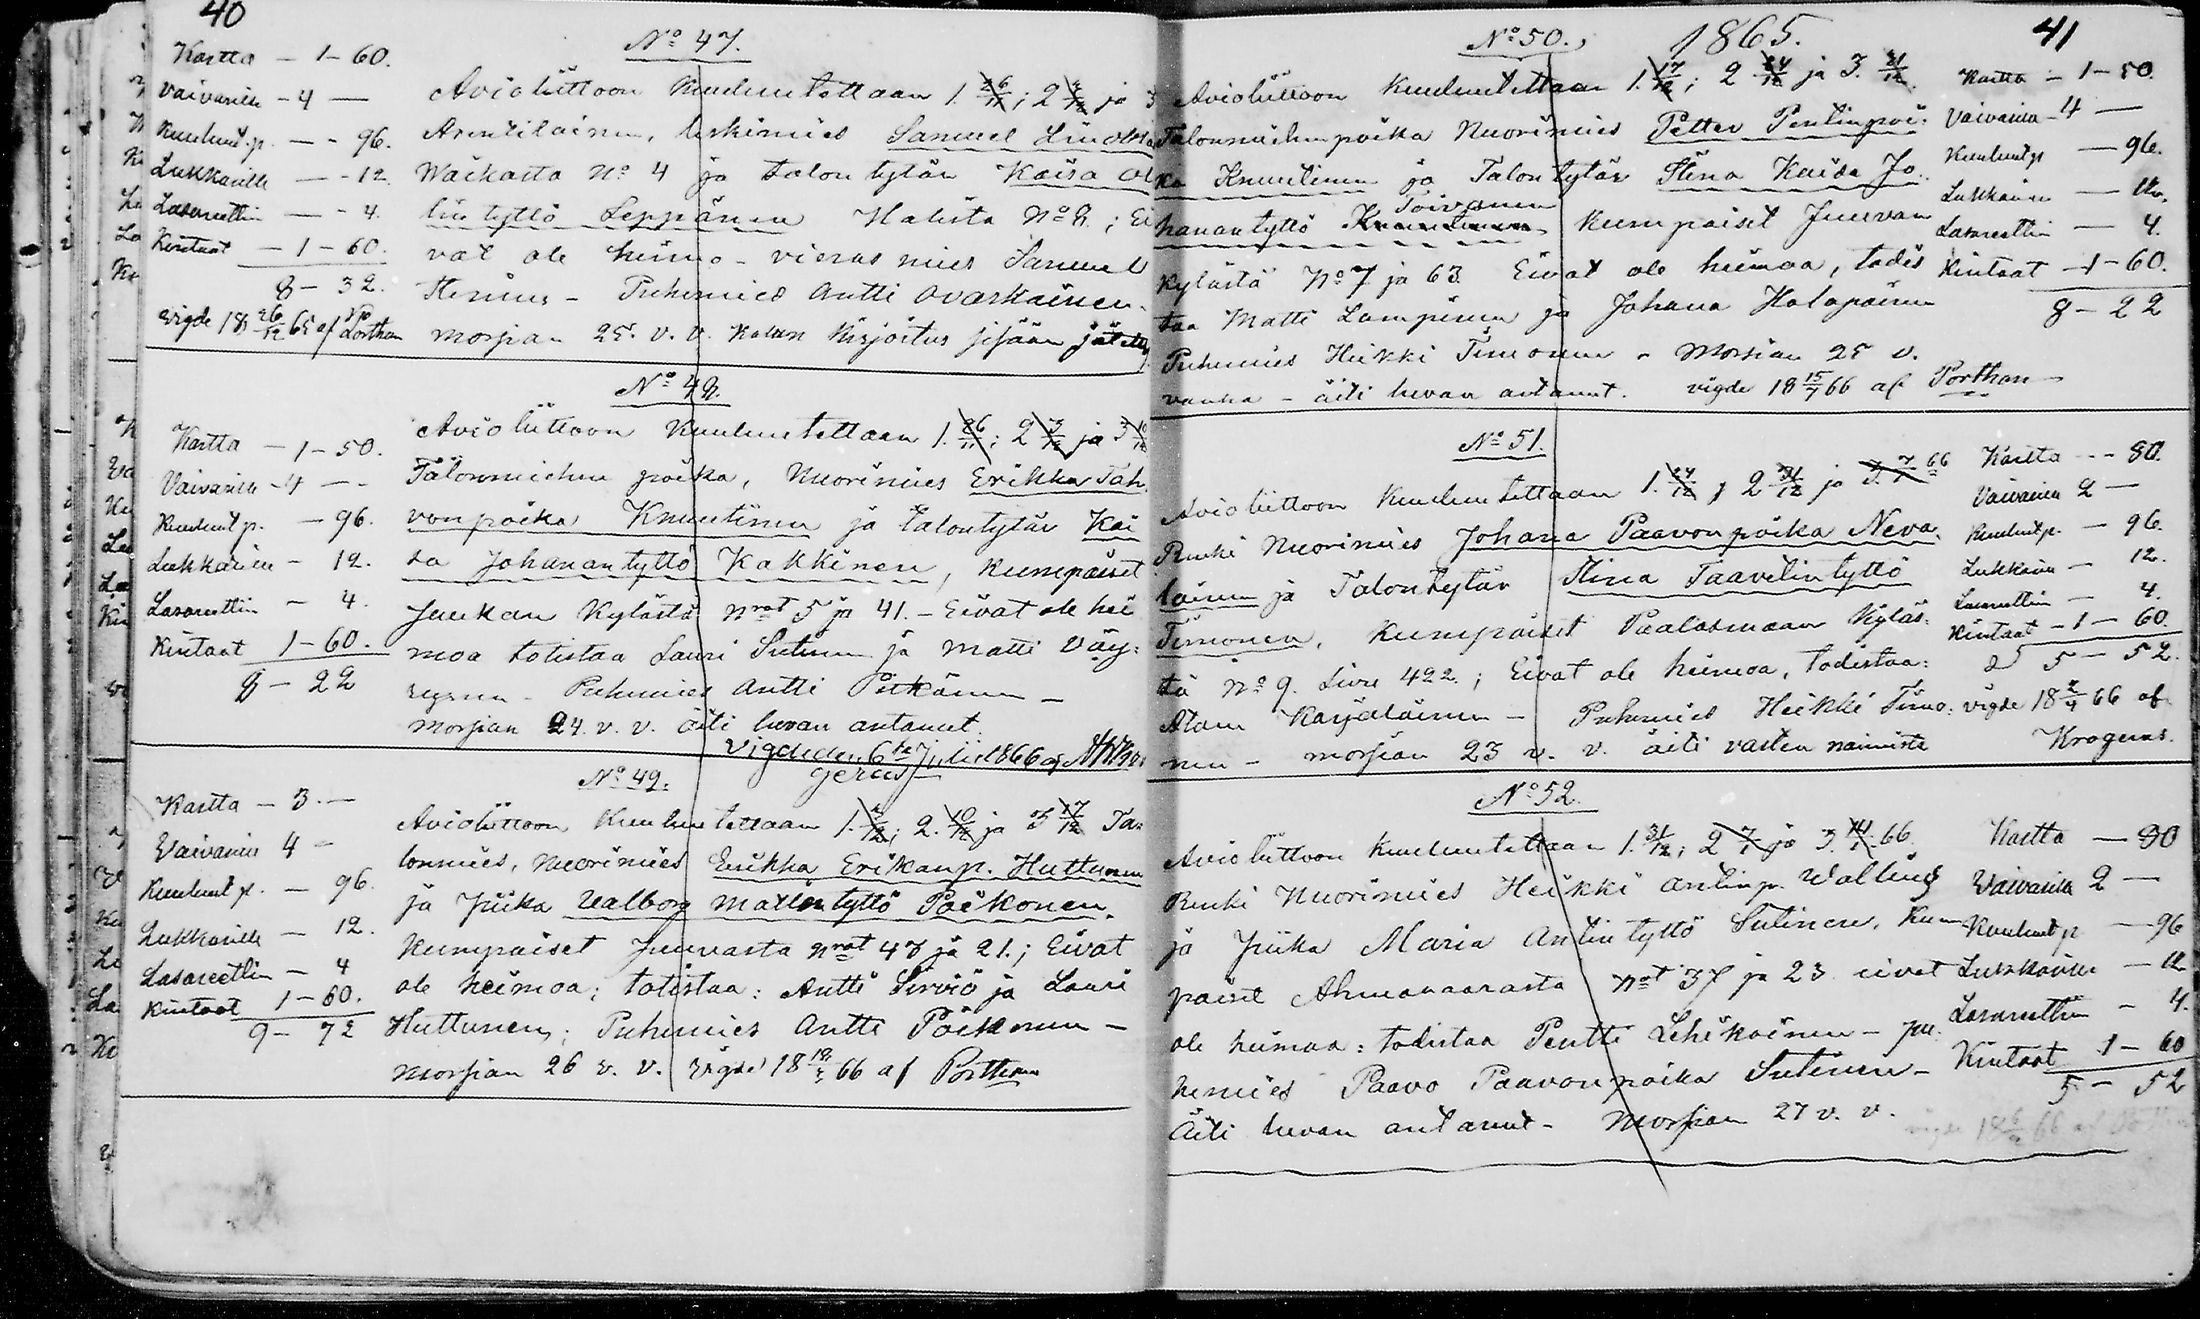 40
Kartta - 1 - 60.
Vaivasille - 4 -
Kuulut.p. - - 96.
Lukkarille - - 12.
Lasareettiin - - 4.
Kintaat - 1 - 60.
8 - 32.
vigde 18 26/12 65 af Porthan
No 47.
Avioliittoon Kuulutettaan 1. 26/11; 2
leskimies Samuel
Wäikästä No 4 ja talon tytär Kaisa
tyttö Leppänen No 8.;
vät ole heimo - vieras mies Samuel
Puhemies Antti Ovaskainen.
morsian 25. v. v. Kirjoitus
No 48.
Kartta - 1 - 50.
Vaivasille - 4 - -
Kuulut p. - 96.
Lukkarille - 12.
Lasareettiin - 4.
Kintaat 1 - 60.
8 - 22
Avioliittoon Kuulutettaan 1. 26/11; 2 3/12 ja 3 10/12
Talonmiehen poika, Nuorimies Erikka Tah
vonpoika Knuutinen ja talontytär Kai
sa Johanantyttö Kakkinen, kumpaiset
Juukan Kylästä Nrot 5 ja 41. - Eivät ole hei
moa totistaa Lauri Sutinen ja Matti Väy:
rynen - Puhemies Antti Pitkänen -
morsian 24. v. v. äiti luvan antanut.
Vigde den 6te Julii 1866 af
No 49.
Kartta - 3. -
Vaivasille 4 -
Kuulut p. - 96.
Lukkarille - 12.
Lasareettiin - 4
Kintaat 1 - 60.
9 - 72
Avioliittoon Kuulutettaan 1. 3/12; 2. 10/12 ja 3 17/12 Ta-
lonmies, Nuorimies Erikka Erikanp. Huttunen
ja Piika Valborg Matintyttö Päikonen.
kumpaiset Juuvasta Nrot 47 ja 21.; Eivät
ole heimoa; totistaa: Antti Sirviö ja Lauri
Huttunen; Puhemies Antti Päikonen -
morsian 26 v. v. vigde 18 66 af Porthan
1865.
41
No 50.
Avioliittoon Kuulutettaan 1. 17/12; 2 24/12 ja 3. 31/12.
Talonmiehenpoika Nuorimies Petter Pentinpoi-
ka Knuutinen ja Talontytär Stina Kaisa Jo
Toivanen
hanantyttö Knuutinen kumpaiset Juuvan
kylästä No 7 ja 63. Eivät ole heimoa, todis
taa Matti Lampinen ja Johana Holopainen
Puhemies Heikki Timonen - Morsian 25 v.
vanha - äiti luvan antanut. vigde 18 15/7 66 af Porthan
Kartta - 1 - 50.
Vaivasille - 4 -
Kuulut p - 96.
Lukkarille - 12.
Lasareettiin - 4.
Kintaat - 1 - 60.
8 - 22
No 51.
Avioliittoon Kuulutettaan 1. 24/12; 2 31/12 ja 3. 7/1 66
Renki Nuorimies Johana Paavonpoika Neva.
lainen ja Talontytär Stina Taavetintyttö
Timonen, kumpaiset Paalasmaan Kyläs:
tä No 9. Sivu 422.; Eivät ole heimoa, Todistaa:
Atam Karjalainen - Puhemies Heikki Timo:
nen - morsian 23 v. v. äiti vasten naimista
Kartta - - 80.
Vaivasille 2 -
Kuulut p. - 96.
Lukkarille - 12.
Lasareettiin - 4.
Kintaat - 1 - 60.
5 - 52.
vigde 18 66 af
Krogerus.
No 52.
Avioliittoon kuulutettaan 1. 31/12; 2 7/1 ja 3. 14/1 66.
Renki Nuorimies Heikki Antinp. Walling
ja Piika Maria Antintyttö Sutinen, Kum
paiset Ahmavaarasta Nrot 37 ja 23. eivät
ole heimoa: todistaa Pentti Lehikoinen - pu.
hemies Paavo Paavonpoika Sutinen -
Äiti luvan antanut - Morsian 27 v. v.
Kartta - 80
Vaivasille 2 -
Kuulut p - 96
Lukkarille - 12
Lasareettiin - 4.
Kintaat 1 - 60
5 - 52